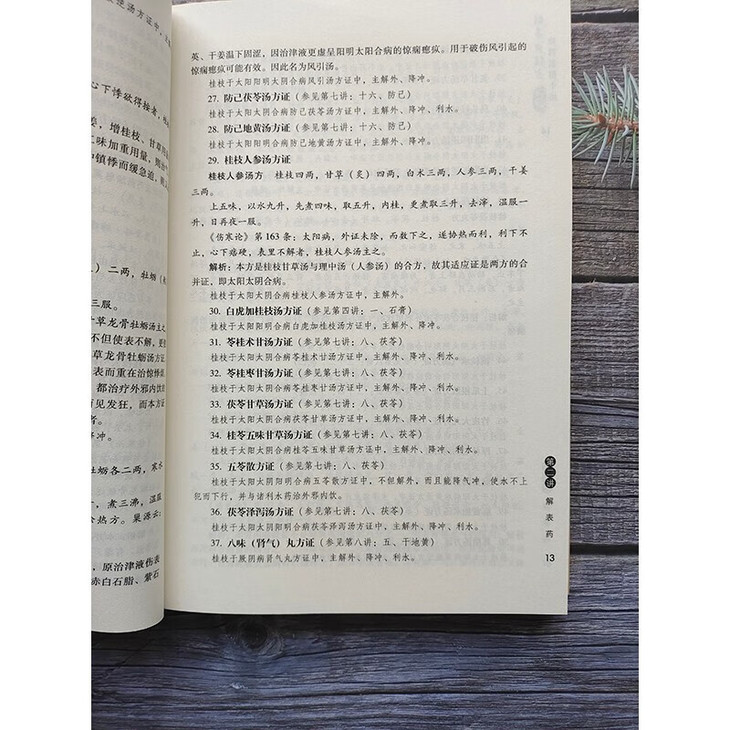 逆汤方证中，
心下悸欲得按者，
姜，增桂枝、甘草
二味加重用量，
中镇悸而缓急迫，
）二两，牡蛎（
三服。
甘草龙骨牡蛎汤主之
不但使表不解，更
草龙骨牡蛎汤方证
表而重在治惊悸
都治疗外邪内饮
而见发狂，而本方证
者。
降冲。
牡蛎各二两，寒水
，煮三沸，温服
合热方。巢源云：
，原治津液伤表
赤白石脂、紫石
英、干姜温下固涩，因治津液更虚呈阳明太阳合病的惊痫瘛疭。用于破伤风引起的
惊痫瘛疭可能有效。因此名为风引汤。
桂枝于太阳阳明太阴合病风引汤方证中，主解外、降冲。
27. 防己茯苓汤方证（参见第七讲：十六、防己）
桂枝于太阳太阴合病防己茯苓汤方证中，主解外、降冲、利水。
28. 防己地黄汤方证（参见第七讲：十六、防己）
桂枝于太阳阳明合病防己地黄汤方证中，主解外、降冲。
29. 桂枝人参汤方证
桂枝人参汤方　桂枝四两，甘草（炙）四两，白术三两，人参三两，干姜
三两。
上五味，以水九升，先煮四味，取五升，内桂，更煮取三升，去滓，温服一
升，日再夜一服。
《伤寒论》第163条：太阳病，外证未除，而数下之，遂协热而利，利下不
止，心下痞硬，表里不解者，桂枝人参汤主之。
解析：本方是桂枝甘草汤与理中汤（人参汤）的合方，故其适应证是两方的合
并证，即太阳太阴合病。
桂枝于太阳太阴合病桂枝人参汤方证中，主解外。
30. 白虎加桂枝汤方证（参见第四讲：一、石膏）
桂枝于太阳阳明合病白虎加桂枝汤方证中，主解外、降冲。
31. 苓桂术甘汤方证（参见第七讲：八、茯苓）
桂枝于太阳太阴合病苓桂术甘汤方证中，主解外、降冲、利水。
32. 苓桂枣甘汤方证（参见第七讲：八、茯苓）
桂枝于太阳太阴合病苓桂枣甘汤方证中，主解外、降冲、利水。
33. 茯苓甘草汤方证（参见第七讲：八、茯苓）
桂枝于太阳太阴合病茯苓甘草汤方证中，主解外、降冲、利水。
34. 桂苓五味甘草汤方证（参见第七讲：八、茯苓）
桂枝于太阳太阴合病桂苓五味甘草汤方证中，主解外、降冲、利水。
35. 五苓散方证（参见第七讲：八、茯苓）
桂枝于太阳太阴阳明合病五苓散方证中，不但解外，而且能降气冲，使水不上
犯而下行，并与诸利水药治外邪内饮。
36. 茯苓泽泻汤方证（参见第七讲：八、茯苓）
桂枝于太阳太阴阳明合病茯苓泽泻汤方证中，主解外、降冲、利水。
37. 八味（肾气）丸方证（参见第八讲：五、干地黄）
桂枝于厥阴病肾气丸方证中，主解外、降冲、利水。
第二讲
解表药
13